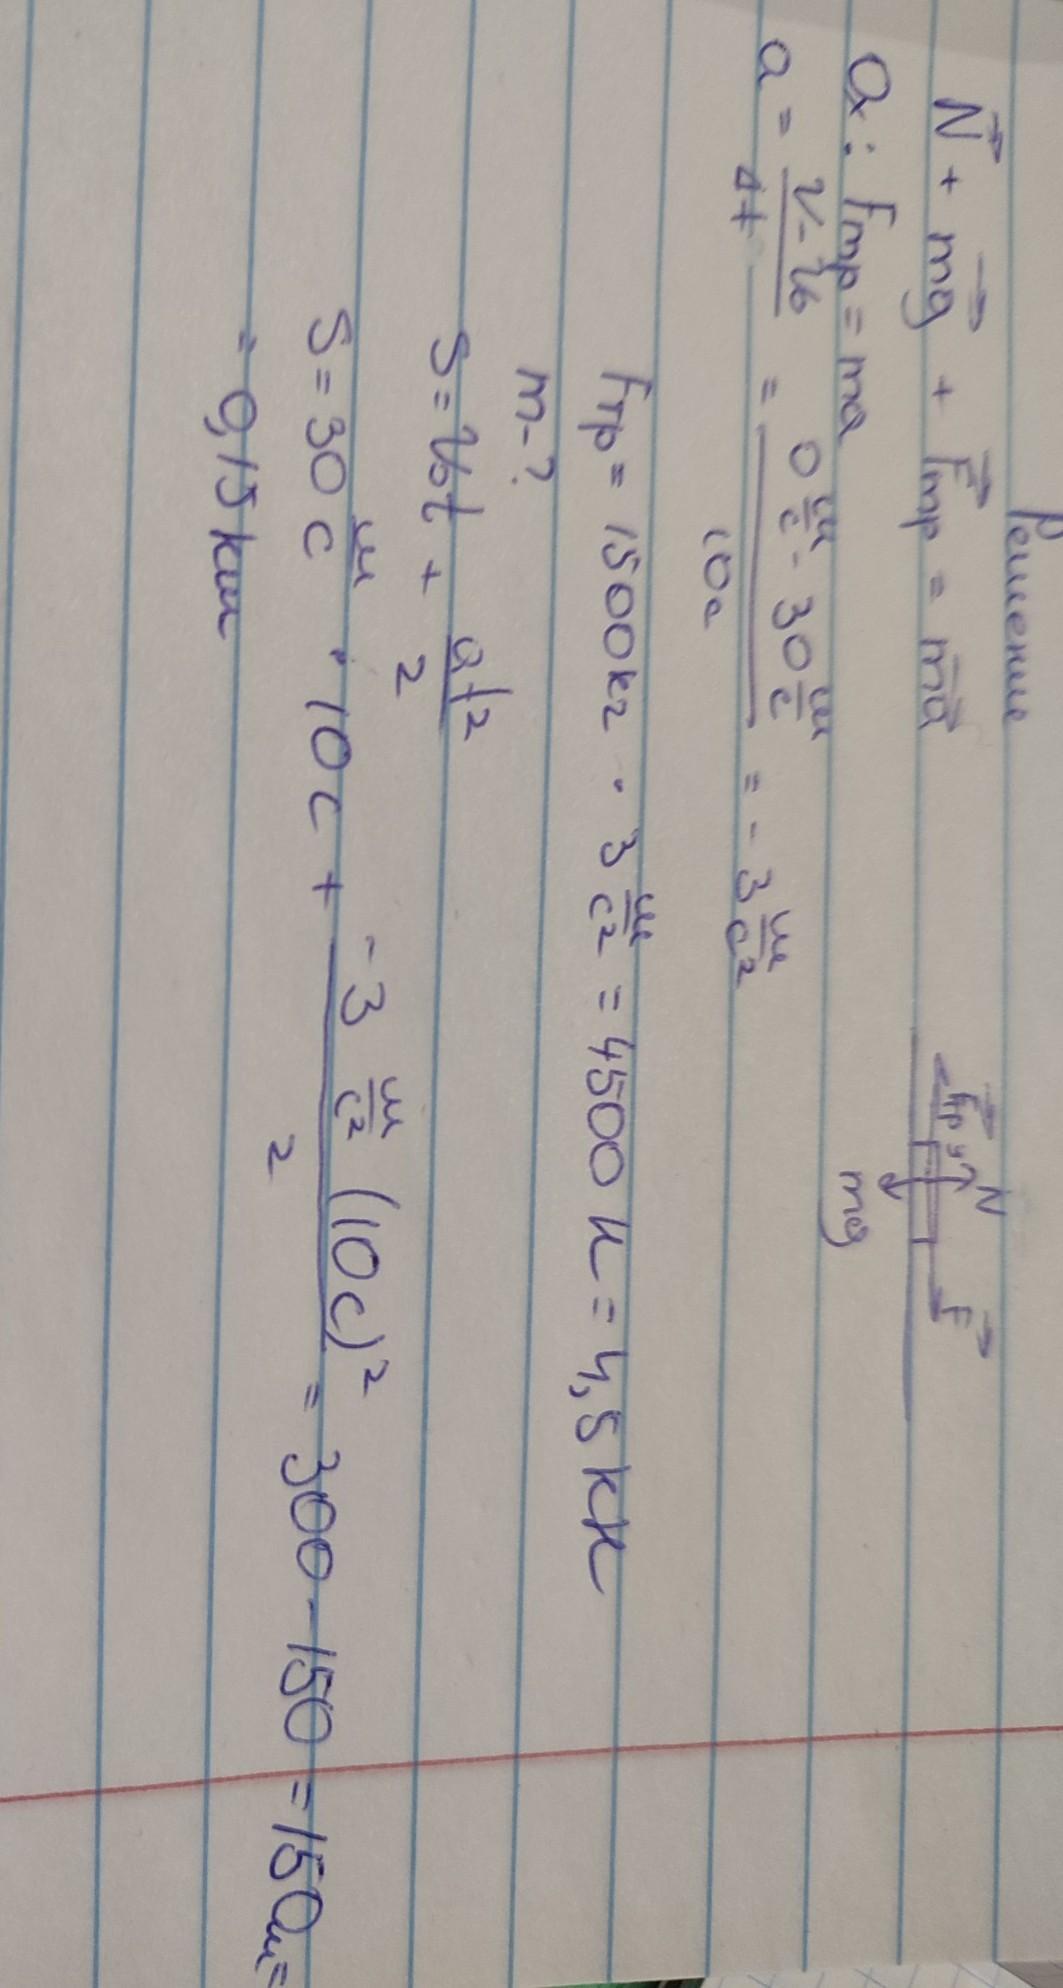 Решение
N + mg + Fтр = ma
Fтр y N F
mg
Ox: Fтр = ma
a = v-v₀/Δt = 0 м/с - 30 м/с / 10с = - 3 м/с²
Fтр = 1500кг · 3 м/с² = 4500 Н = 4,5 кН
m-?
S = v₀t + at²/2
S = 30 м/с · 10с + -3 м/с² (10с)²/2 = 300 - 150 = 150м =
= 0,15 км